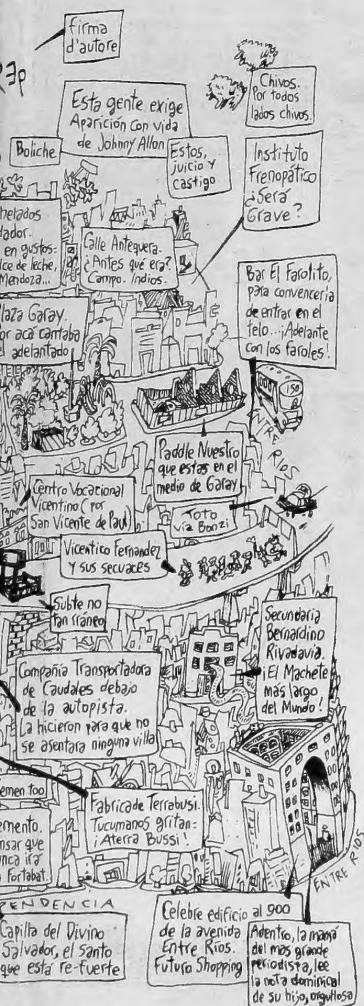 firma
d'autore
Rep
Chivos.
Por todos
lados chivos.
Esta gente exige
Aparición con vida
de Johnny Allon
Boliche
Estos,
juicio y
castigo
Instituto
Frenopático
¿Será
Grave?
helados
dador.
en gustos:
lce de leche,
Mendoza...
Calle Antequera.
¿Antes qué era?
Campo. Indios.
Bar El Farolito,
para convencerla
de entrar en el
telo...¡Adelante
con los faroles!
laza Garay.
or acá cantaba
l adelantado
150
ENTRE RIOS
Paddle Nuestro
que estas en el
medio de Garay
Centro Vocacional
Vicentino (por
San Vicente de Paul)
Toto
via Boozi
Vicentico Fernandez
y sus secuaces
Subte no
tan rraneo
Secundaria
Bernardino
Rivadavia.
¡El Machete
mas largo
del Mundo!
Compañia Transportadora
de Caudales debajo
de la autopista.
La hicieron para que no
se asentara ninguna villa
emen too
Fabrica de Terrabusi.
Tucumanos gritan:
¡Aterra Bussi!
emento.
nsar que
nca irá
a Fortabat.
PENDENCIA
ENTRE RIOS
Capilla del Divino
Salvador, el santo
que está re-fuerte
Celebre edificio al 900
de la avenida
Entre Rios.
Futuro Shopping
Adentro, la mamá
del mas grande
periodista, lee
la nota dominical
de su hijo, orgullosa